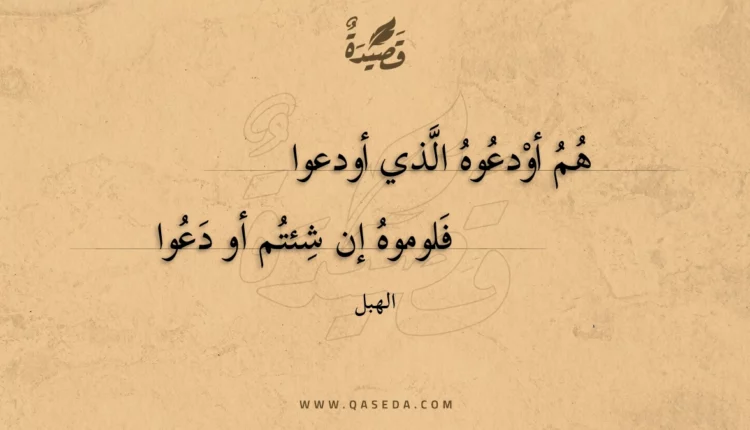 قَصِيدَةٌ
هُمُ أوْدعُوهُ الَّذي أودعوا
فَلوموهُ إن شِئتُم أو دَعُوا
الهبل
WWW.QASEDA.COM